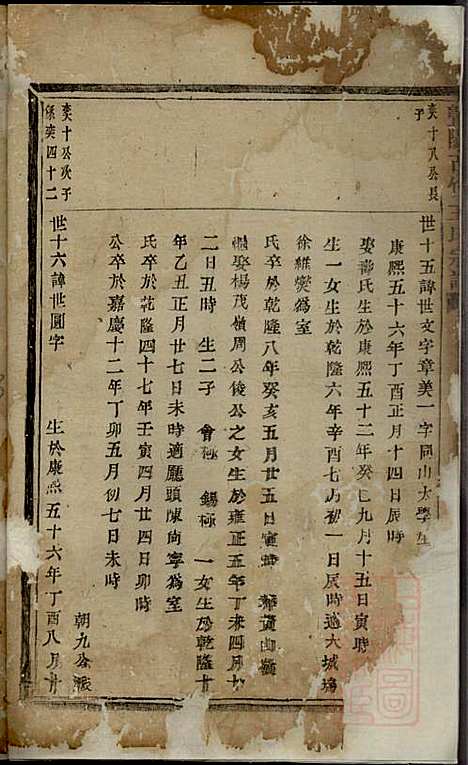 奕十八公長
子
世十五諱世文字章美一字同山太學生
康熙五十六年丁酉正月十四日辰時
娶壽氏生於康熙五十二年癸巳九月十五日寅時
生一女生於乾隆六年辛酉七月初一日辰時適大城塢
徐維爕為室
氏卒於乾隆八年癸亥五月廿五日寅時
繼娶楊茂嶺周公俊公之女生於雍正五年丁未四月十
二日丑時 生二子 會極 錫極 一女生於乾隆廿
年乙丑正月廿七日未時適廳頭陳尚寧為室
氏卒於乾隆四十七年壬寅四月廿四日卯時
公卒於嘉慶十二年丁卯五月初七日未時
朝九公派
奕十公次子
係奕四十二
世十六諱世圓字 生於康熙五十六年丁酉八月廿